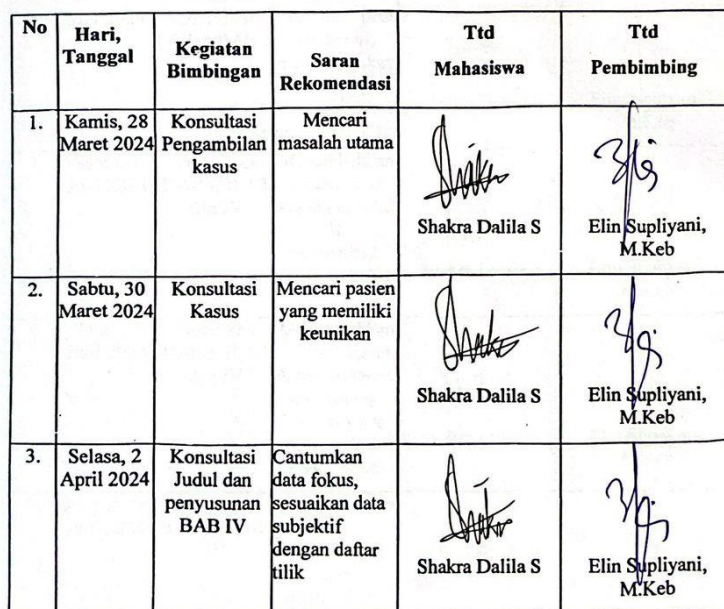 No
Hari,
Tanggal
Kegiatan
Bimbingan
Saran
Rekomendasi
Ttd
Mahasiswa
Ttd
Pembimbing
1.
Kamis, 28
Maret 2024
Konsultasi
Pengambilan
kasus
Mencari
masalah utama
Shakra Dalila S
Elin Supliyani,
M.Keb
2.
Sabtu, 30
Maret 2024
Konsultasi
Kasus
Mencari pasien
yang memiliki
keunikan
Shakra Dalila S
Elin Supliyani,
M.Keb
3.
Selasa, 2
April 2024
Konsultasi
Judul dan
penyusunan
BAB IV
Cantumkan
data fokus,
sesuaikan data
subjektif
dengan daftar
tilik
Shakra Dalila S
Elin Supliyani,
M.Keb